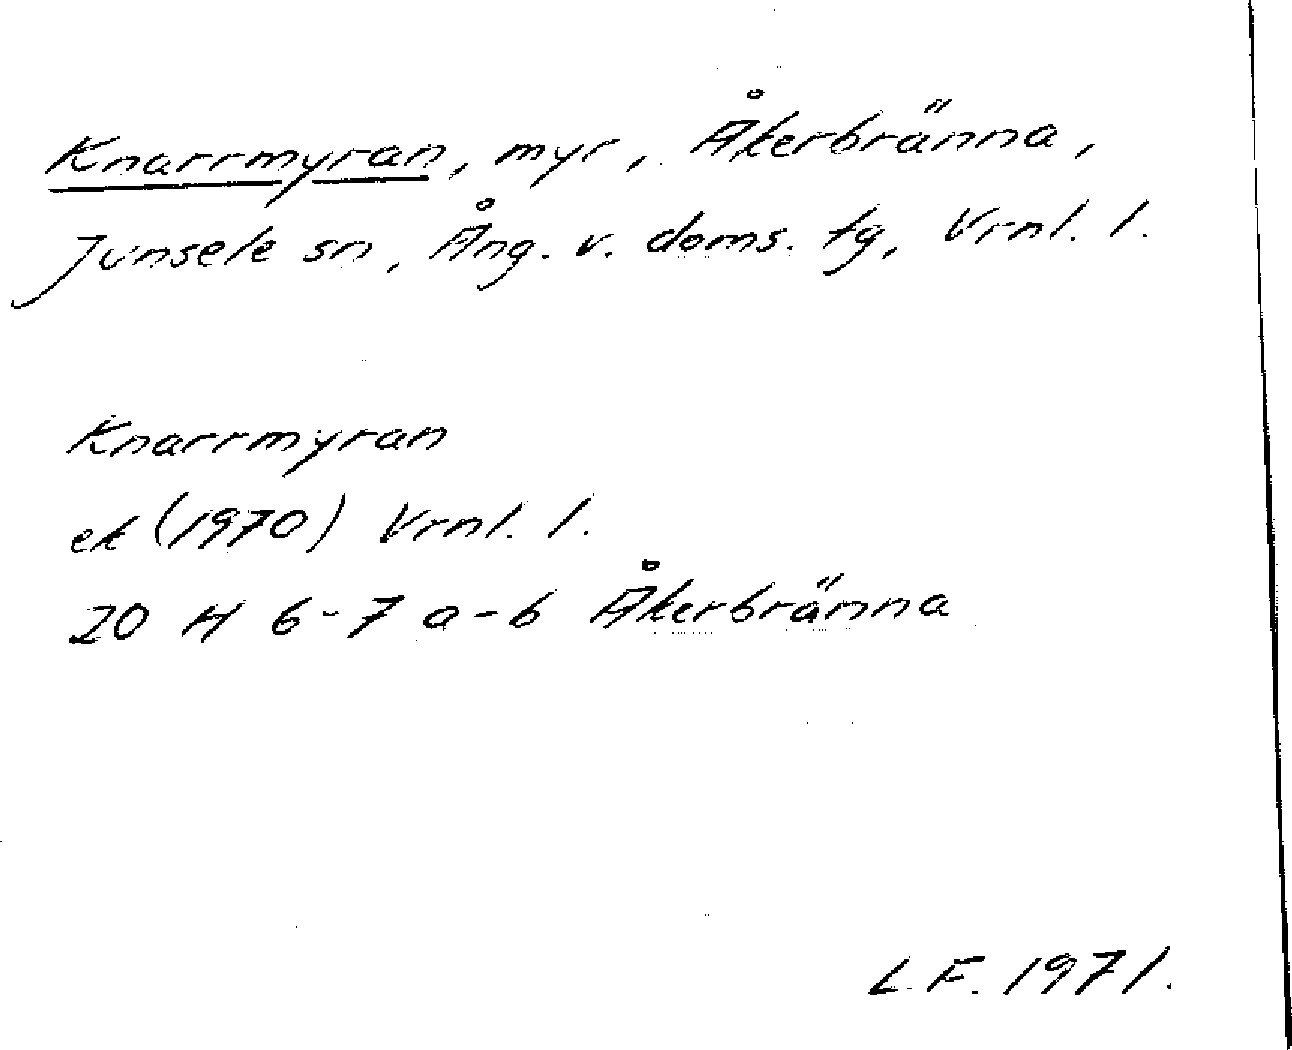 Knarrmyran, myr, Åkerbränna,
Junsele sn, Ång. v. doms. tg, Vrnl. l.
Knarrmyran
ek (1970) Vrnl. l.
20 H 6-7 a-b Åkerbränna
L.F. 1971.